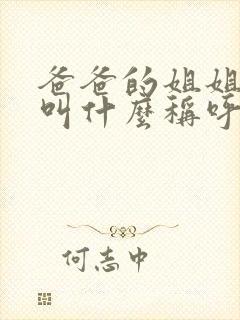 爸爸的姐姐
叫什麼稱呼
何志中